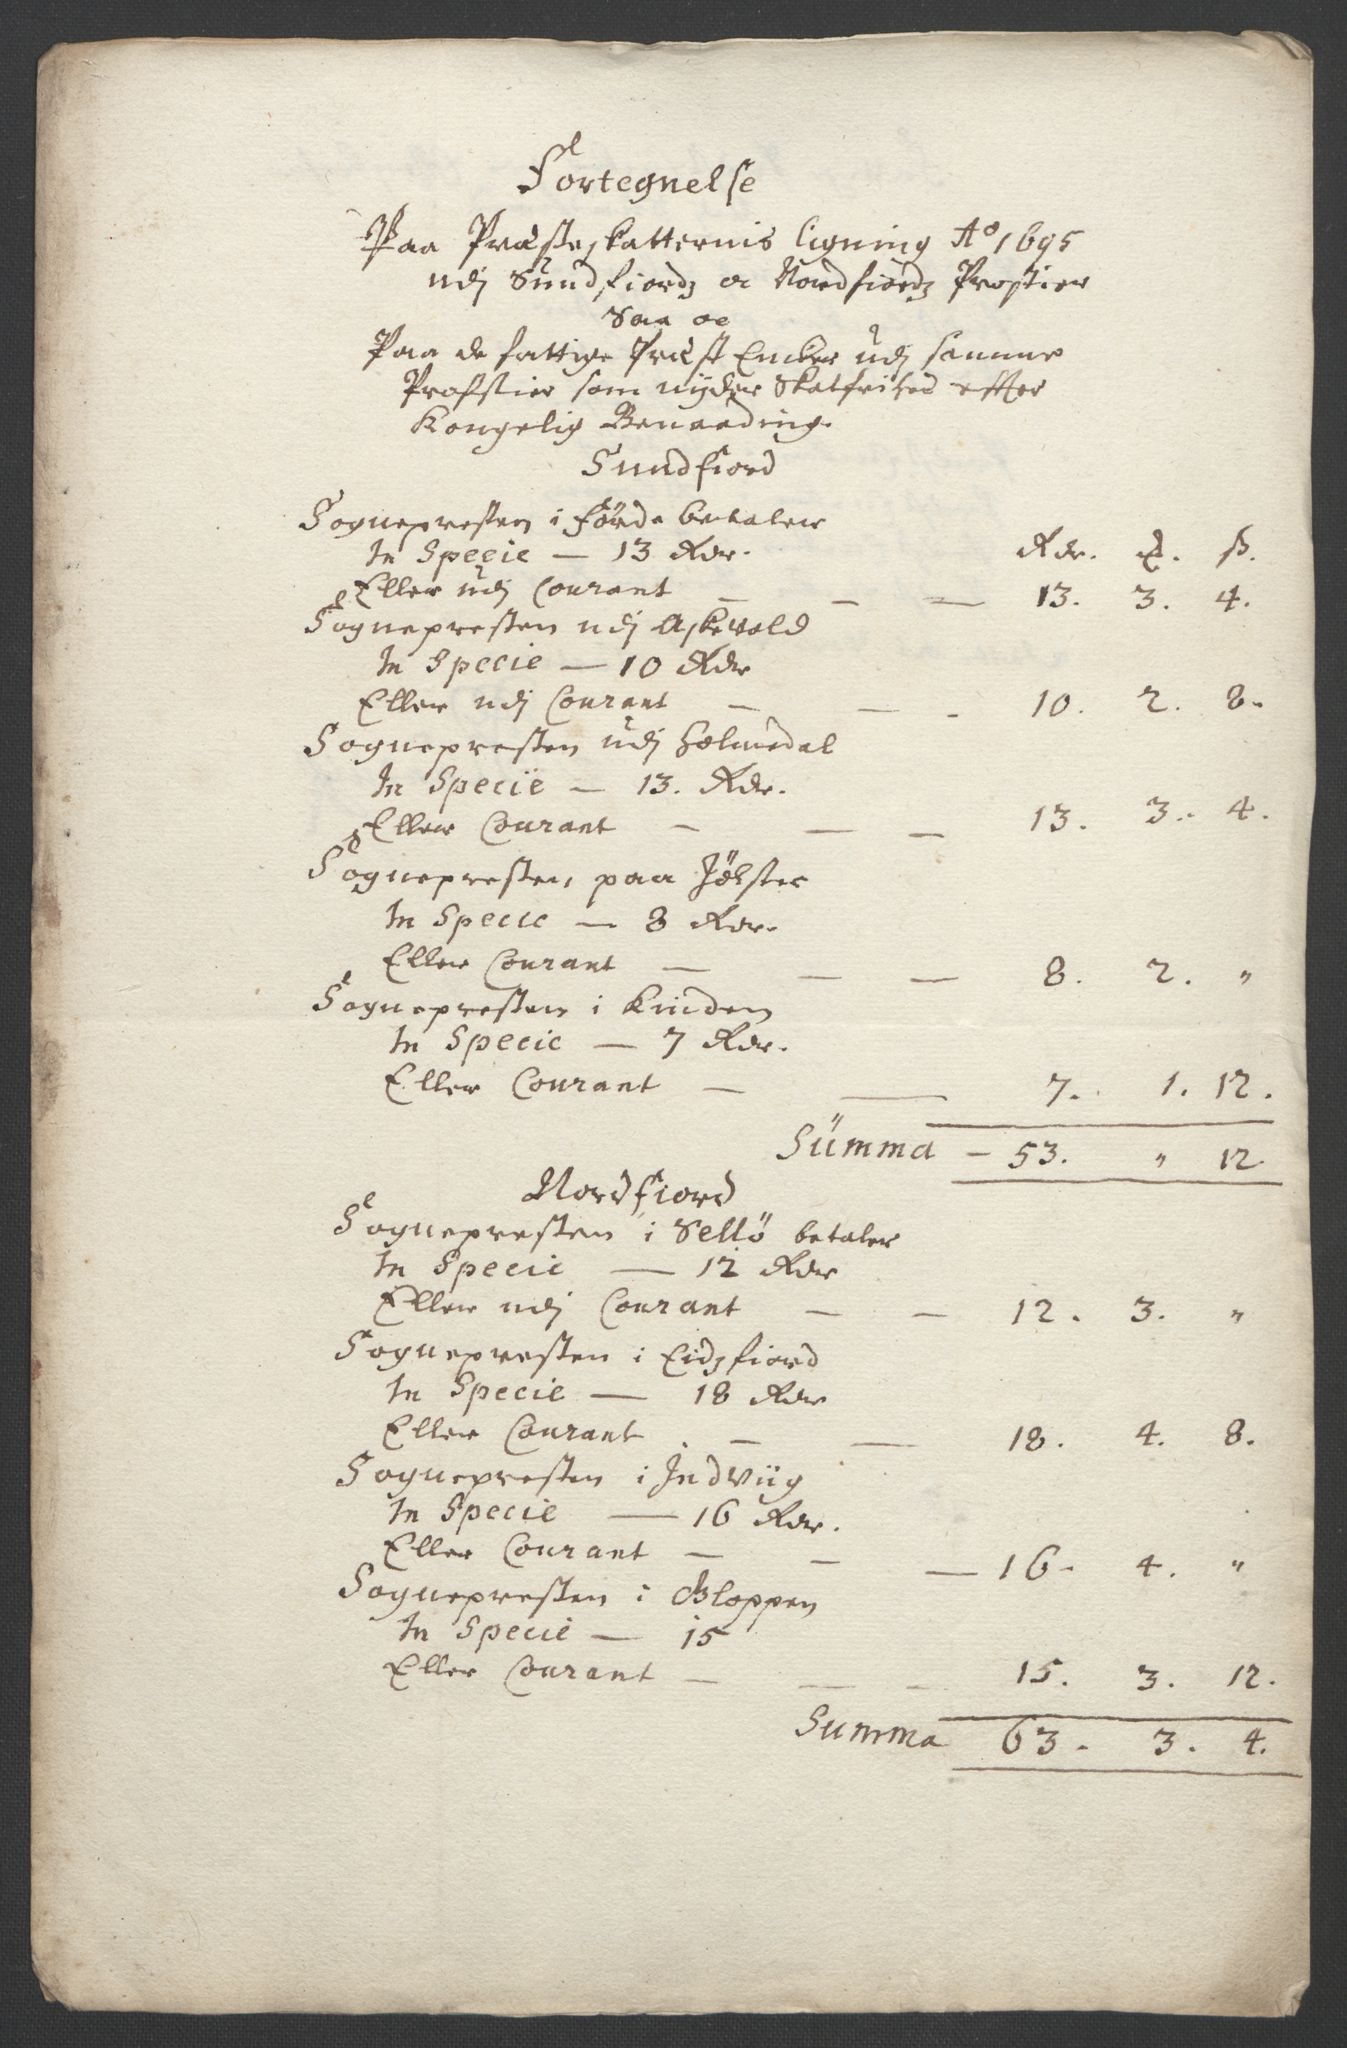 Fortegnelse
Paa Præsteskatternis ligning Ao 1695
udj Sundfiordz oc Nordfiordz Prostier
Saa oc
Paa de fattige Præst Encker udj samme
Profstier som nyder Skatfrihed effter
Kongelig Benaading.
Sundfiord
Sognepresten i Förde betaler
In Specie — 13 Rdr. Rdr. ß.
Eller udj Courant — — — 13. 3. 4.
Sognepresten udj Askevold
In Specie — 10 Rdr
Eller udj Courant — — - 10. 2. 8.
Sognepresten udj Holmedal
In Specie — 13. Rdr.
Eller Courant — — — 13. 3. 4.
Sognepresten paa Jölster
In Specie — 8 Rdr.
Eller Courant — — — 8. 2. "
Sognepresten i Kinden
In Specie — 7 Rdr.
Eller Courant — — 7. 1. 12.
Summa — 53. " 12.
Nordfiord
Sognepresten i Sellö betaler
In Specie — 12 Rdr
Eller udj Courant — — 12. 3. "
Sognepresten i Eidzfiord
In Specie — 18 Rdr
Eller Courant — — 18. 4. 8.
Sognepresten i Indviig
In Specie — 16 Rdr.
Eller Courant — — — 16. 4. "
Sognepresten i Gloppen
In Specie — 15
Eller Courant — — — 15. 3. 12.
Summa 63. 3. 4.